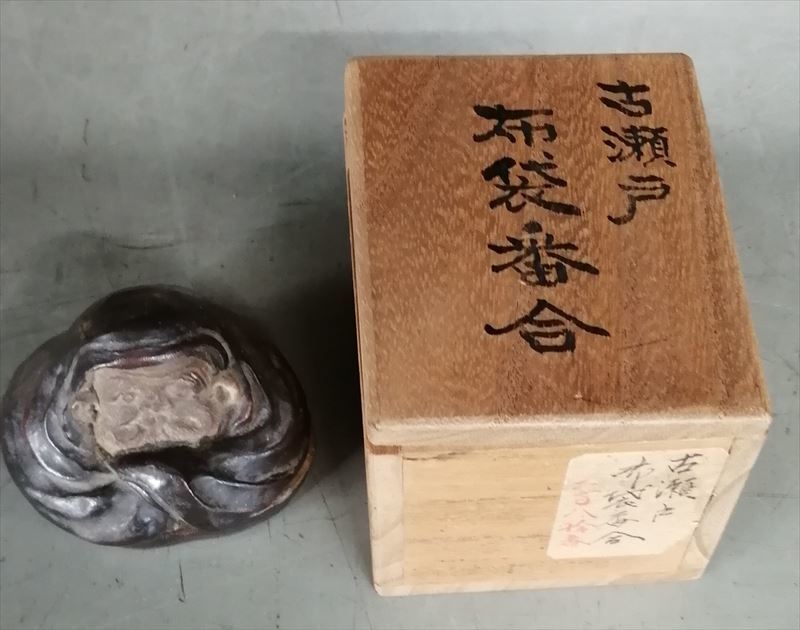 古瀬戸
布袋番合
古瀬戸
布袋香合